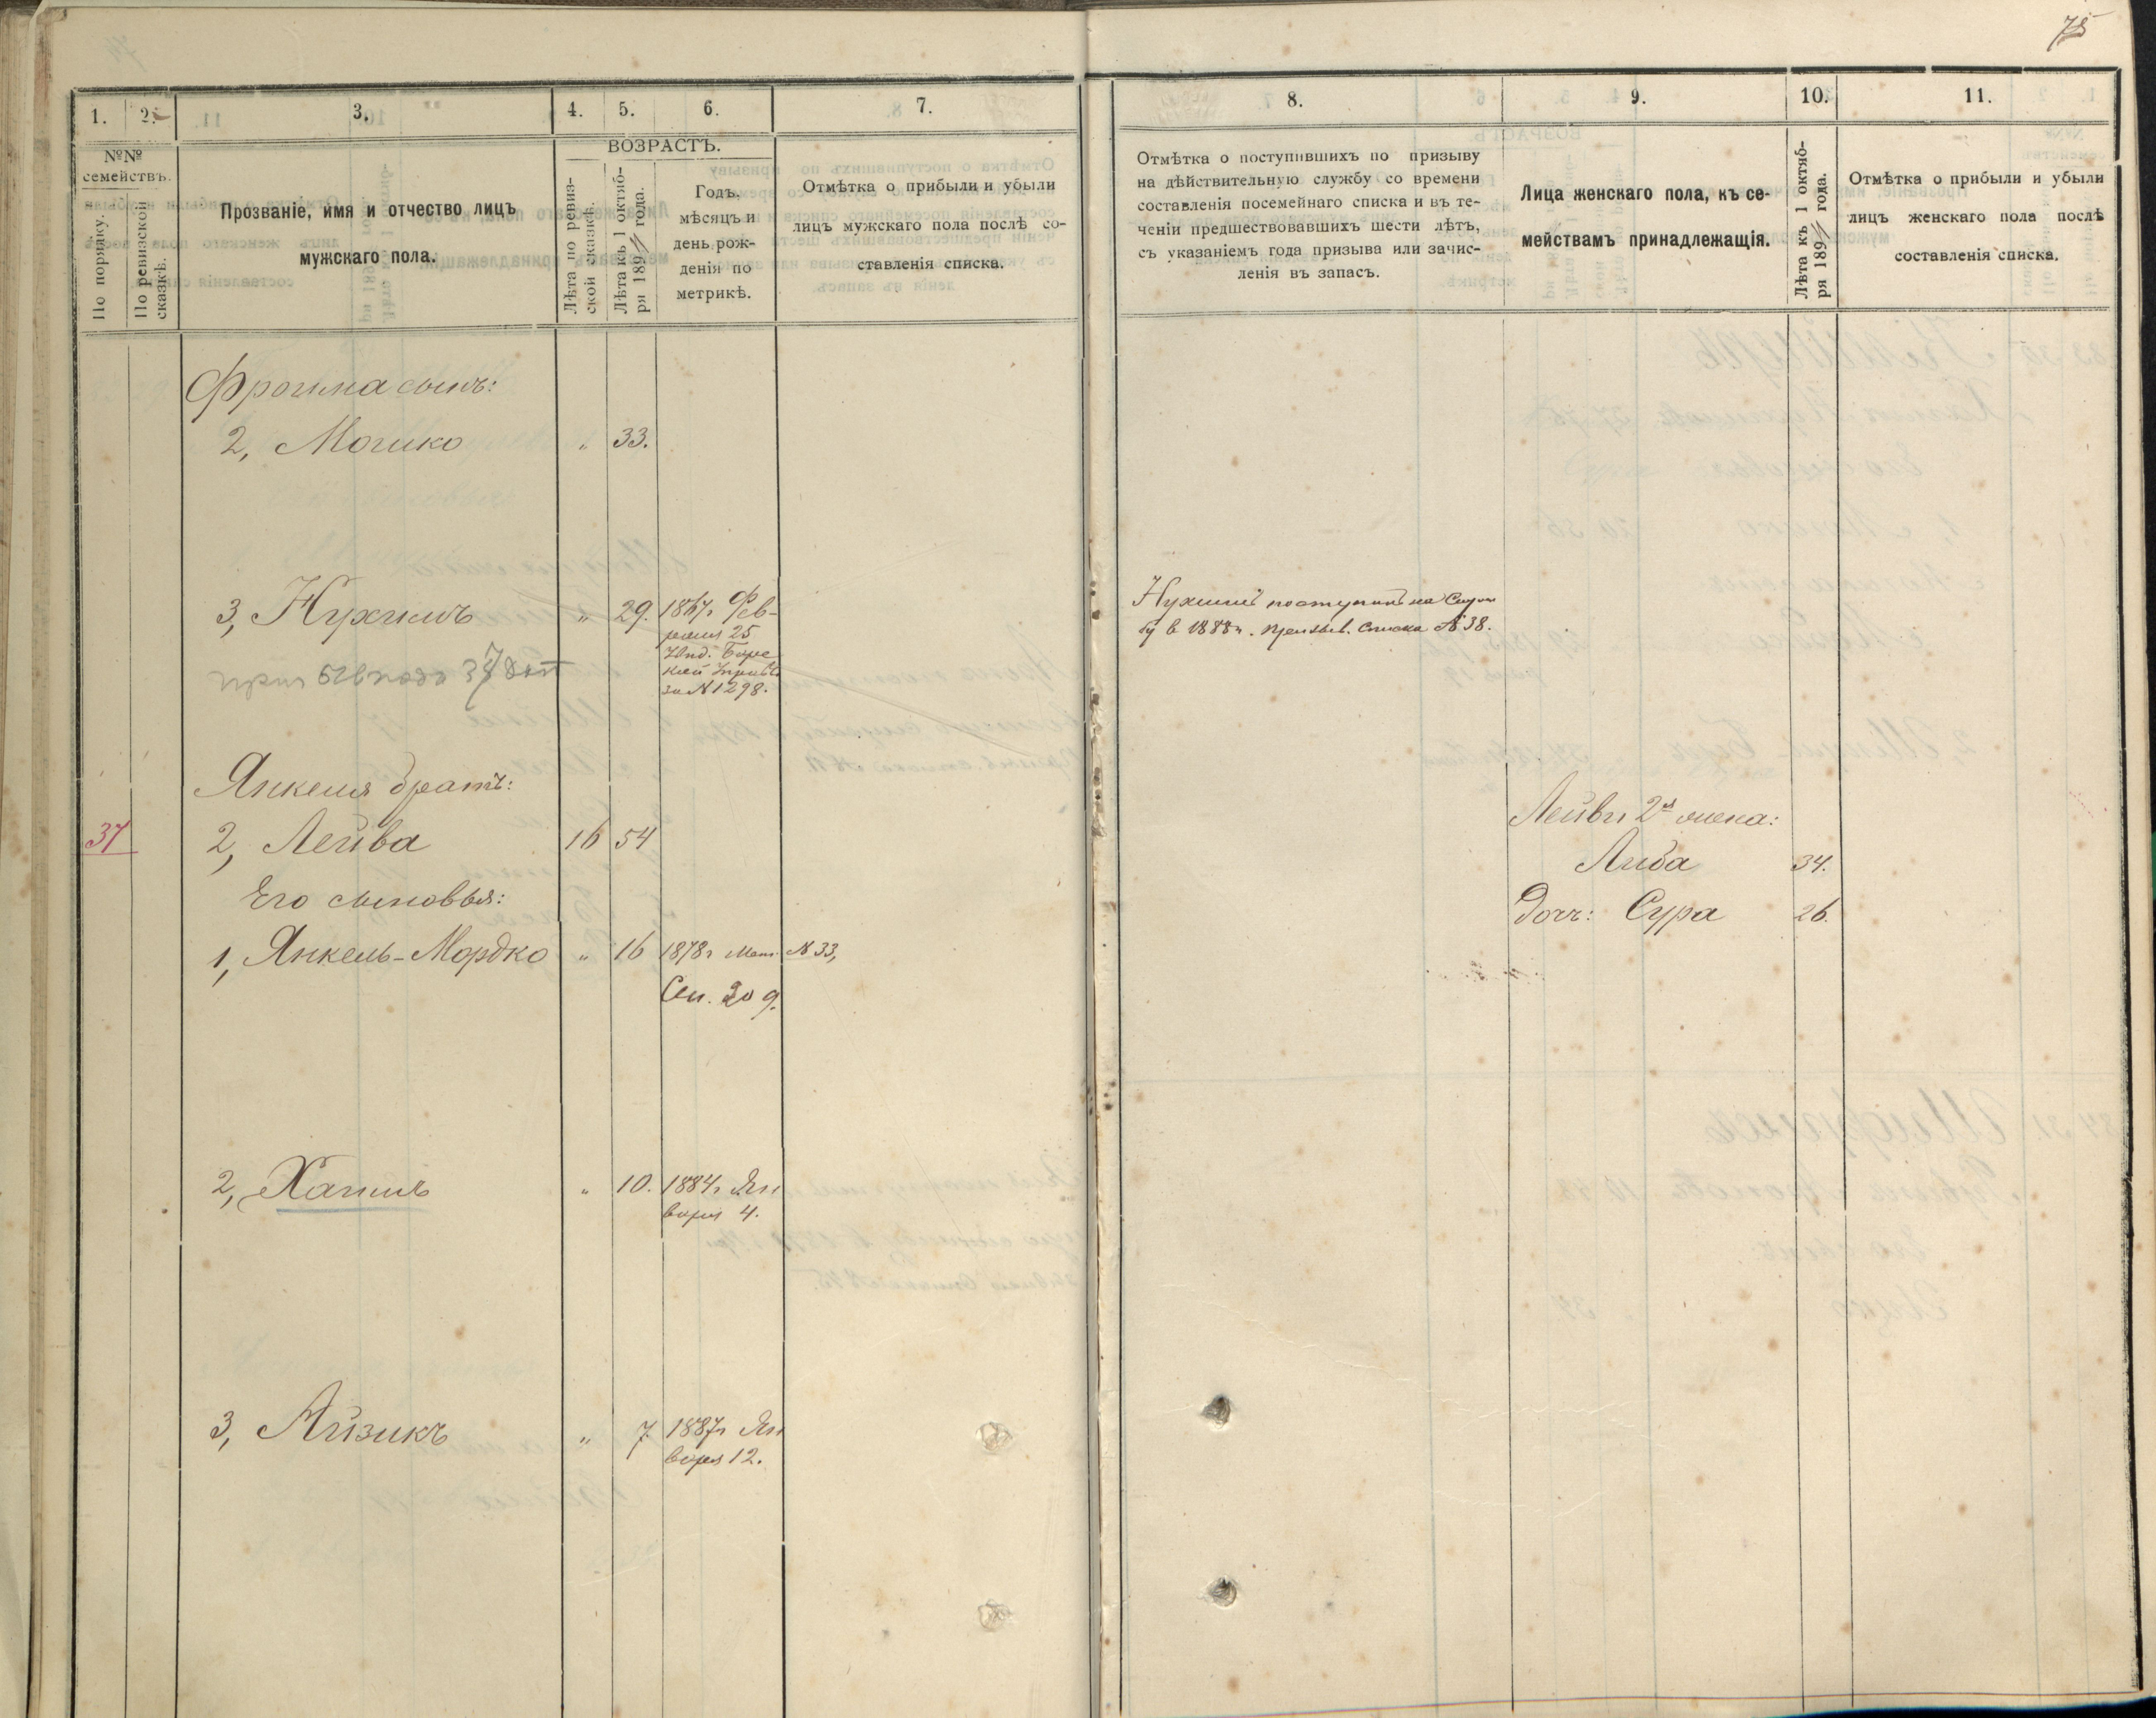 75
1.
2.
3.
4.
5.
6.
7.
№№
семействъ.
По порядку.
По ревизской
сказкѣ.
Прозваніе, имя и отчество лицъ
мужскаго пола.
ВОЗРАСТЪ.
Лѣта по ревиз-
ской сказкѣ.
Лѣта къ 1 октяб-
ря 1894 года.
Годъ,
мѣсяцъ и
день рож-
денія по
метрикѣ.
Отмѣтка о прибыли и убыли
лицъ мужскаго пола послѣ со-
ставленія списка.
Фроима сынъ:
2, Мошко " 33.
3, Нухимъ " 29. 1864г Фев-
раля 25
за №1298.
Янкеля братъ:
37 2, Лейва 16 54
Его сыновья:
1, Янкель-Мордко " 16 1878г Мет. №33,
Сен. 20 9.
2, Хаимъ " 10. 1884г Ян
варя 4.
3, Айзикъ " 7 1887г Ян
варя 12.
8.
9.
10.
11.
Отмѣтка о поступившихъ по призыву
на дѣйствительную службу со времени
составленія посемейнаго списка и въ те-
ченіи предшествовавшихъ шести лѣтъ,
съ указаніемъ года призыва или зачис-
ленія въ запасъ.
Лица женскаго пола, къ се-
мействамъ принадлежащія.
Лѣта къ 1 октяб-
ря 1894 года.
Отмѣтка о прибыли и убыли
лицъ женскаго пола послѣ
составленія списка.
Нухимъ поступилъ на Служ
бу в 1888г. Призыв. Списка №38.
Лейвы 2я жена:
Либа 34.
Дочь: Сура 26.